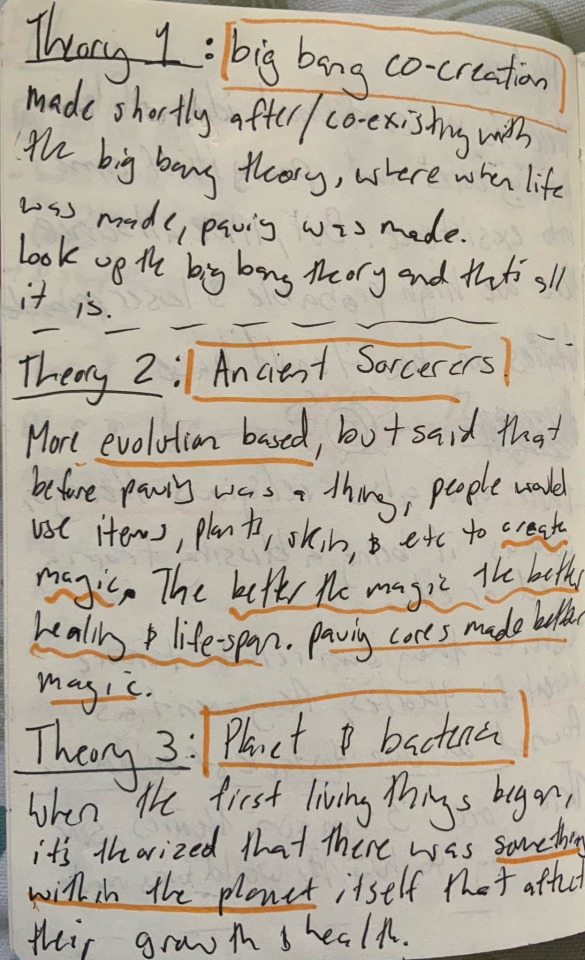 Theory 1: big bang co-creation
made shortly after/co-existing with
the big bang theory, where when life
was made, paviy was made.
Look up the big bang theory and that's all
it is.
Theory 2: Ancient Sorcerers
More evolution based, but said that
before paviy was a thing, people would
use items, plants, skin, & etc to create
magic. The better the magic the better
healing & life-span. paviy cores made better
magic.
Theory 3: Planet & bacteria
When the first living things began,
it's theorized that there was something
within the planet itself that affect
their growth & health.